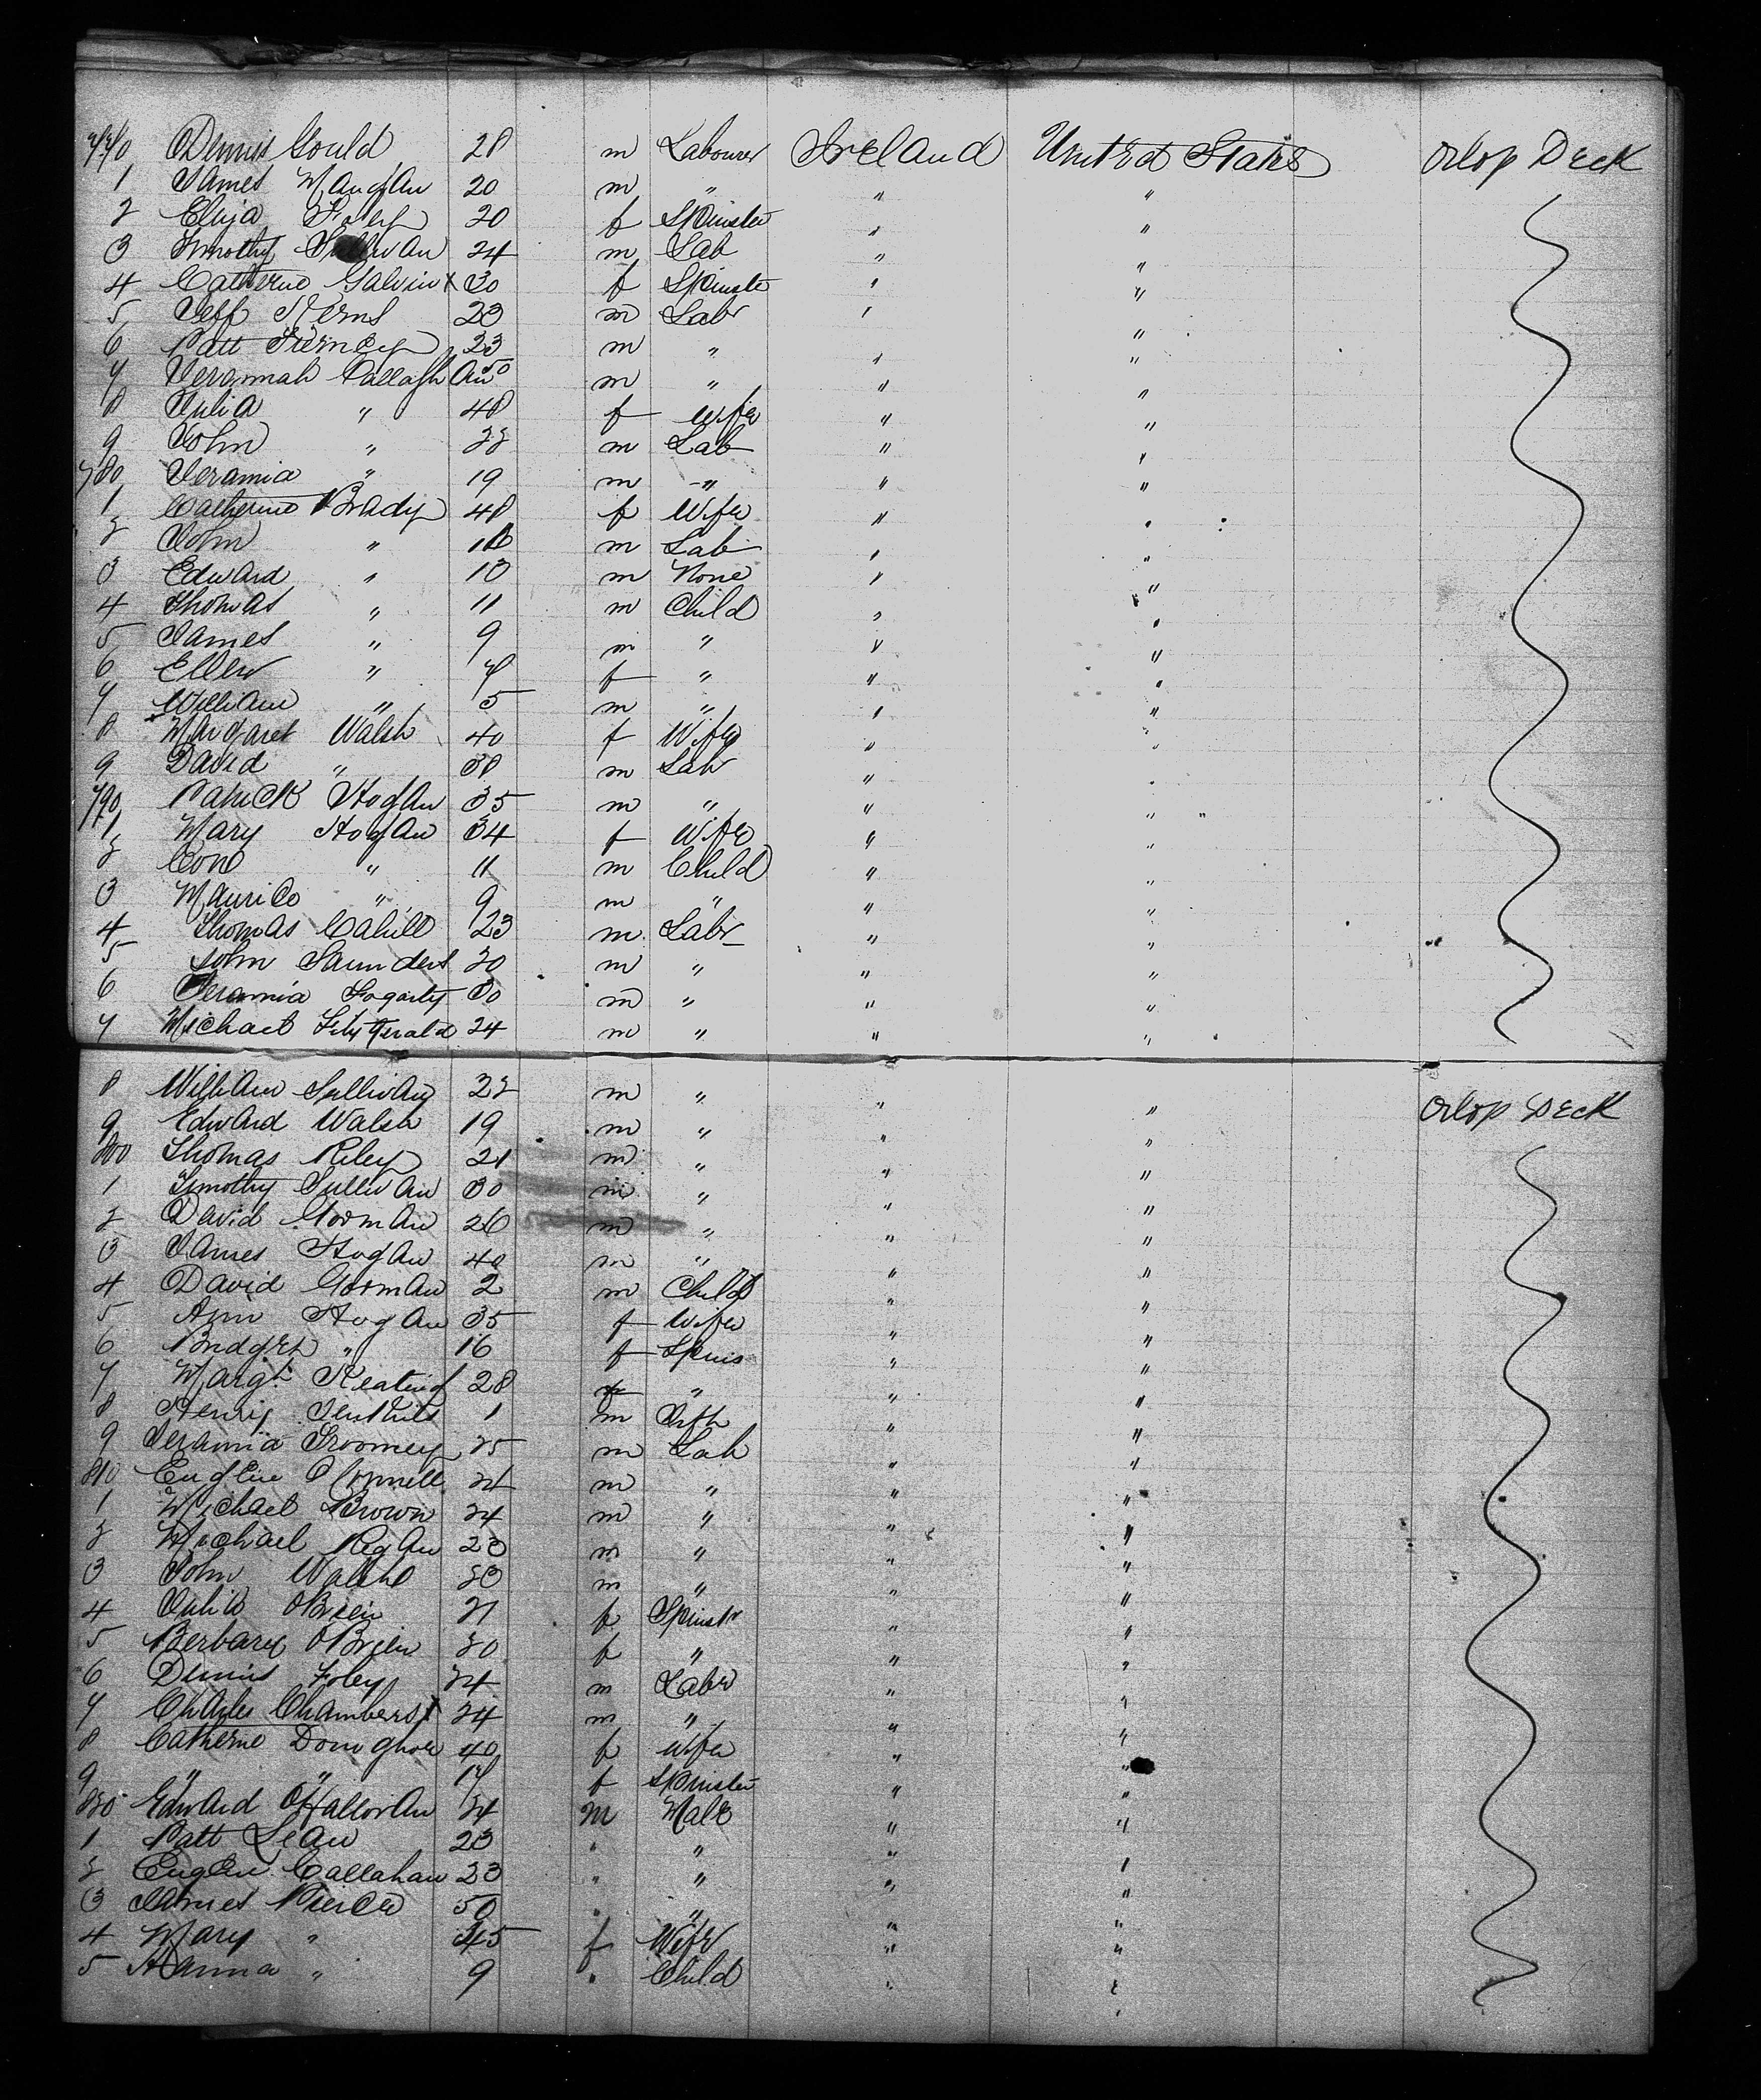 770 Dennis Gould 28 m Labourer Ireland United States Orlop Deck
1 James Maughan 20 m " " "
2 Eliza Foley 20 f Spinster " "
3 Timothy Sullivan 24 m Lab " "
4 Catherine Galvin x 30 f Spinste " "
5 Jeff Kerns 23 m Labr " "
6 Patt Tierney 23 m " " "
7 Jeramiah Callaghan 50 m " " "
8 Julia " 48 f Wife " "
9 John " 22 m Lab " "
780 Jeramia " 19 m " " "
1 Catherine Brady 48 f Wife " "
2 John " m Lab " "
3 Edward " 13 m None " "
4 Thomas " 11 m Child " "
5 James " 9 m " " "
6 Ellen " 7 f " " "
7 William " 5 m " " "
8 Margaret Walsh 40 f Wife " "
9 David " 38 m Lab " "
790 Patrick Hogan 35 m " " "
1 Mary Hogan 34 f Wife " "
2 Con " 11 m Child " "
3 Maurice " 9 m " " "
4 Thomas Cahill 23 m Labr " "
5 John Saunders 20 m " " "
6 Jeramia Fogarty 30 m " " "
7 Michael Fitzgerald 24 m " " "
8 William Sullivan 22 m " " " Orlop Deck
9 Edward Walsh 19 m " " "
800 Thomas Riley 21 m " " "
1 Timothy Sullivan 30 m " " "
2 David Gorman 26 m " " "
3 James Hogan 40 m " " "
4 David Gorman 2 m Child " "
5 Ann Hogan 35 f Wife " "
6 Bridget " 16 f Spins " "
7 Margt Keating 28 f " " "
8 Henry 1 m Infn " "
9 Jeramia Twomey 25 m Lab " "
810 Eugene O Connell 24 m " " "
1 Michael Brown 24 m " " "
2 Michael Regan 23 m " " "
3 John Walsh 23 m " " "
4 Julia OBrien 21 f Spinstr " "
5 Berbary OBrien 20 f " " "
6 Dennis Foley 24 m Labr " "
7 Charles Chambers x 24 m " " "
8 Catherine Donoghoe 40 f Wife " "
9 " " 17 f Spinster " "
820 Edward OHalloran 24 m Male " "
1 Patt Lean 23 " " " "
2 Eugene Callahan 23 " " " "
3 James Pierce 50 " " " "
4 Mary " 45 f Wife " "
5 Hanna " 9 " Child " "